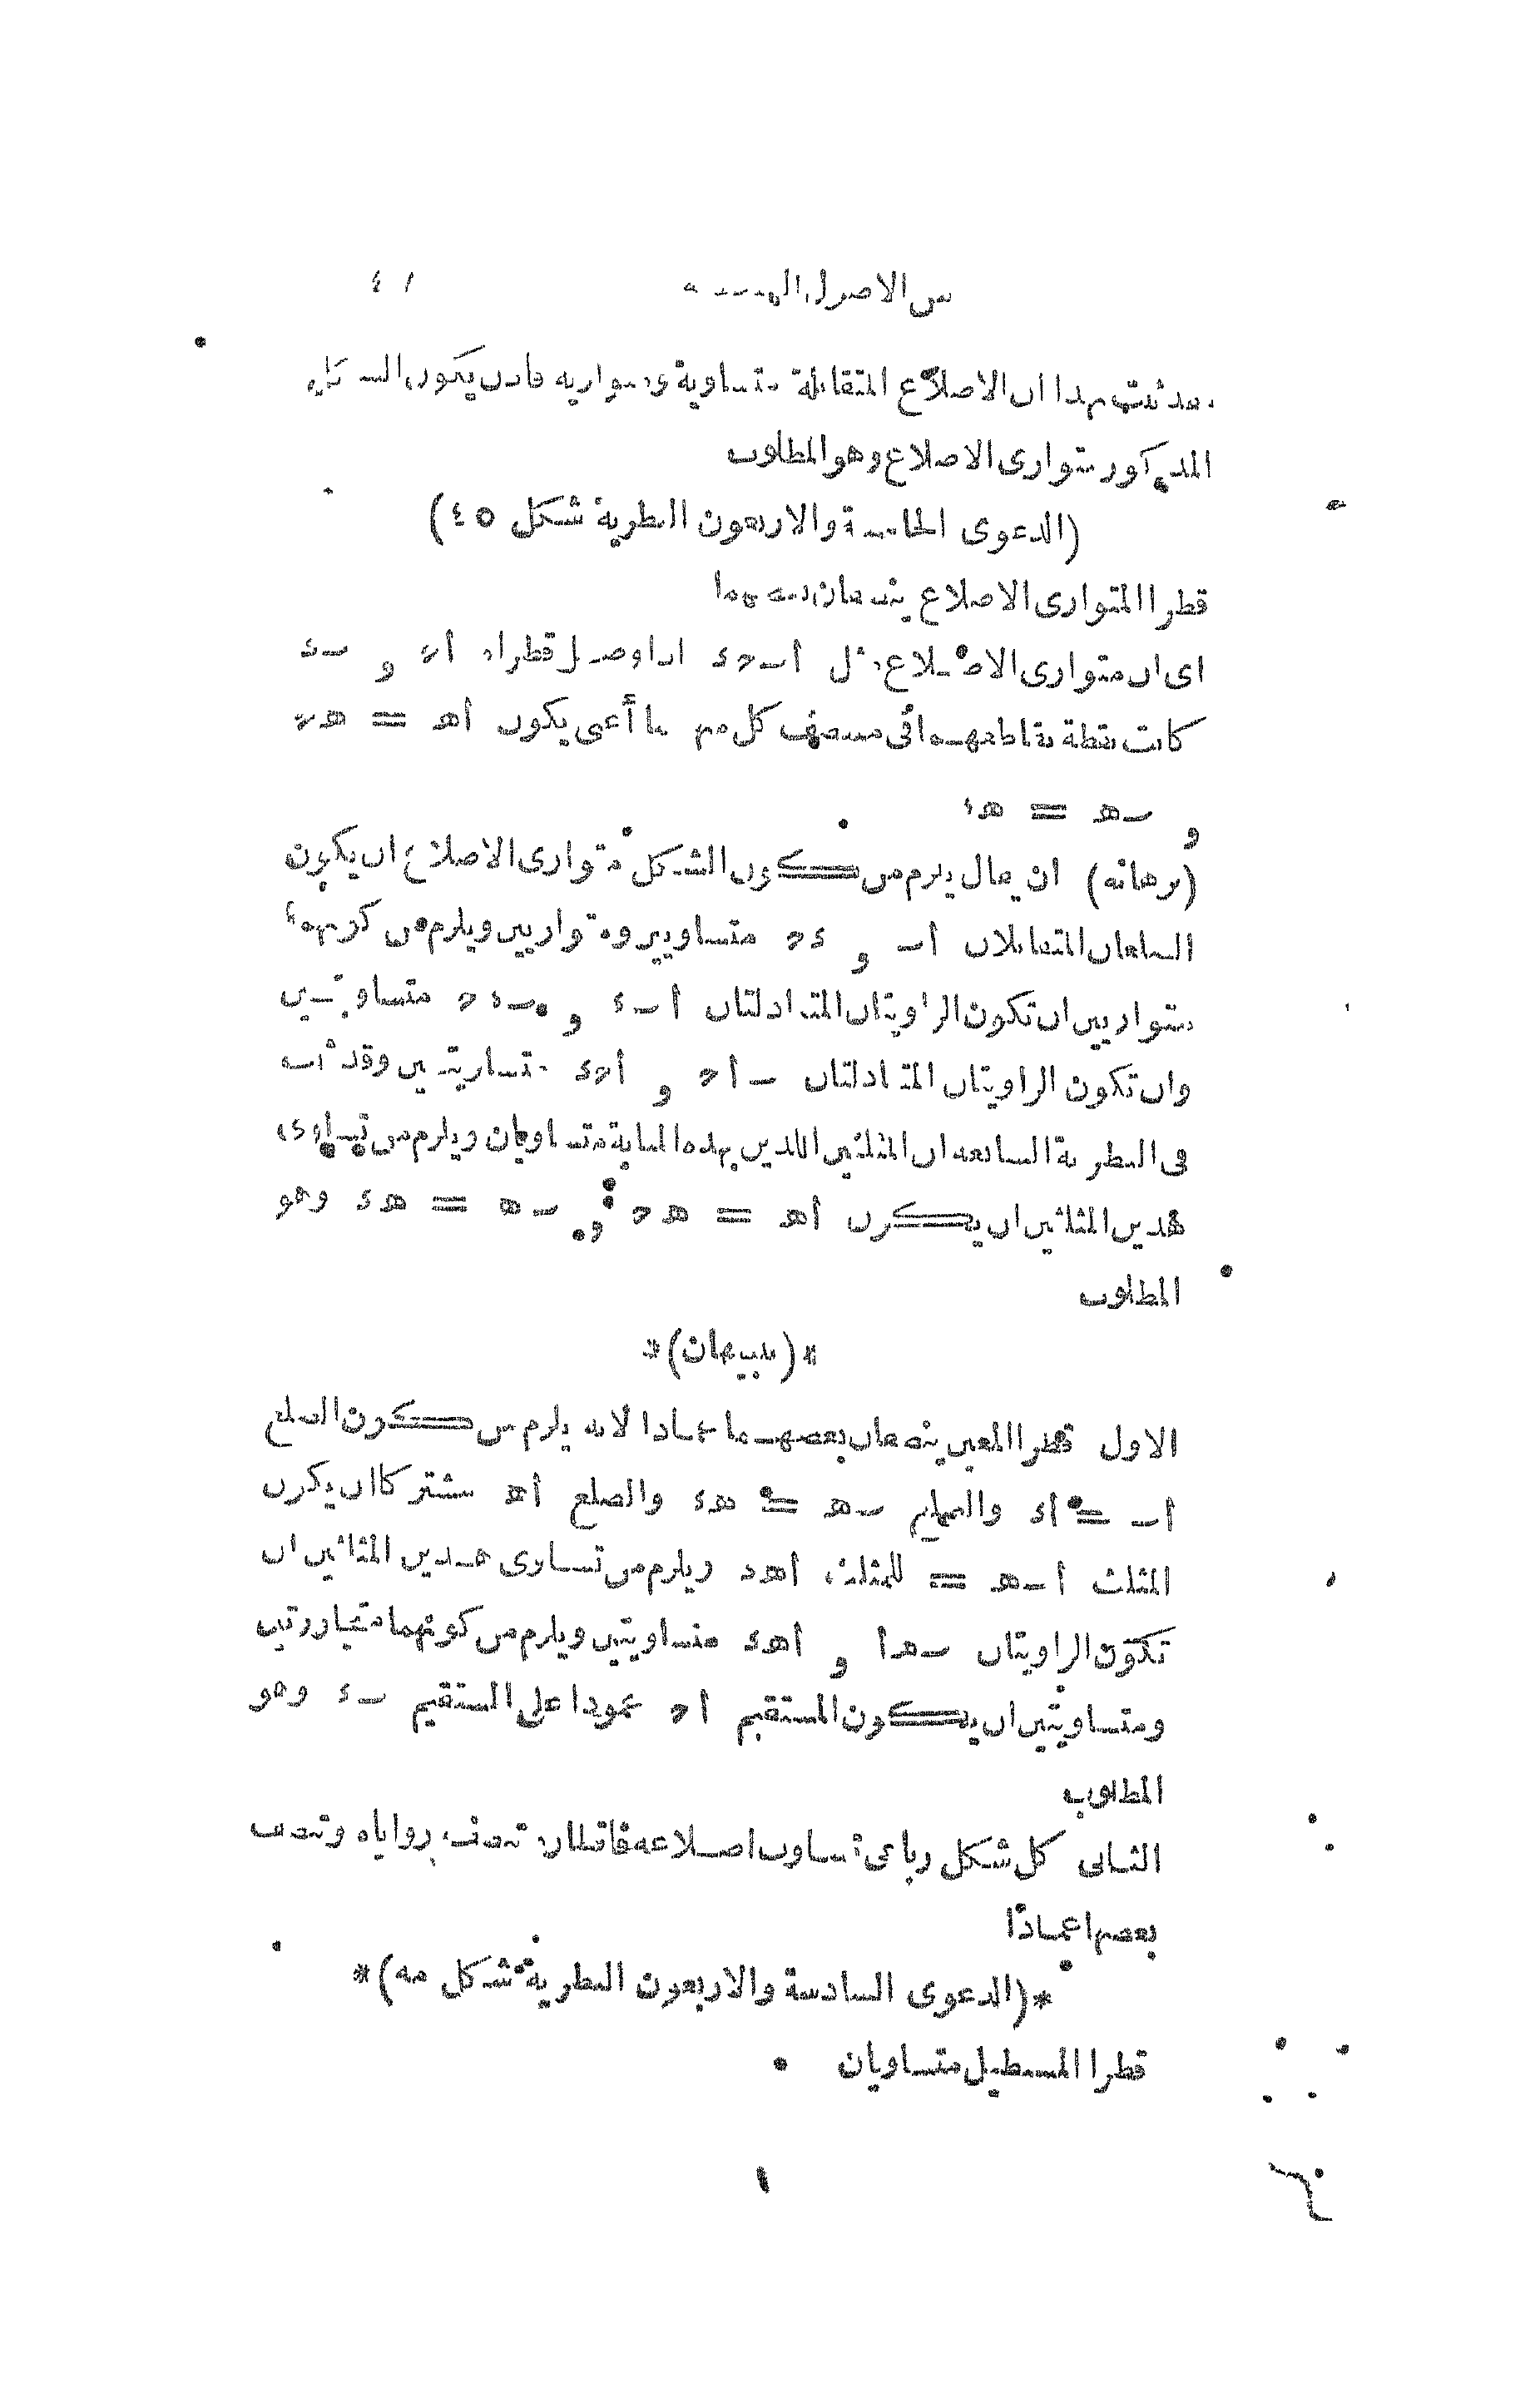 من الاصول الهندسية ٤١
فقد ثبت بهذا ان الاضلاع المتقابلة متساوية ومتوازية فاذن يكون الشكل
المذكور متوازى الاضلاع وهو المطلوب
(الدعوى الخامسة والاربعون النظرية شكل ٤٥)
قطرا المتوازى الاضلاع ينصفان بعضهما
اى ان متوازى الاضلاع مثل أ ب ح د اذا وصل قطراه أ ح و ب د
كانت نقطة تقاطعهما فى منتصف كل منهما أعنى يكون أ هـ = هـ ح
و ب هـ = هـ د
(برهانه) ان يقال يلزم من كون الشكل متوازى الاضلاع ان يكون
الضلعان المتقابلان أ ب و د ح متساويين ومتوازيين ويلزم من كونهما
متوازيين ان تكون الزاويتان المتبادلتان أ ب د و ب د ح متساويتين
وان تكون الزاويتان المتبادلتان ب أ ح و أ ح د متساويتين وقد ثبت
فى النظرية السابعة ان المثلثين اللذين بهذه المثابة متساويان ويلزم من تساوى
هذين المثلثين ان يكون أ هـ = هـ ح و ب هـ = هـ د وهو
المطلوب
*(تنبيهان)*
الاول قطرا المعين ينصفان بعضهما عمادا لانه يلزم من كون الضلع
أ ب = أ د والضلع ب هـ = هـ د والضلع أ هـ مشتركا ان يكون
المثلث أ ب هـ = للمثلث أ هـ د ويلزم من تساوى هذين المثلثين ان
تكون الزاويتان ب هـ أ و أ هـ د متساويتين ويلزم من كونهما متجاورتين
ومتساويتين ان يكون المستقيم أ ح عمودا على المستقيم ب د وهو
المطلوب
الثانى كل شكل رباعى تساوت اضلاعه فاقطاره تنصف زواياه وتنصف
بعضها عمادًا
*(الدعوى السادسة والاربعون النظرية شكل مه)*
قطرا المستطيل متساويان